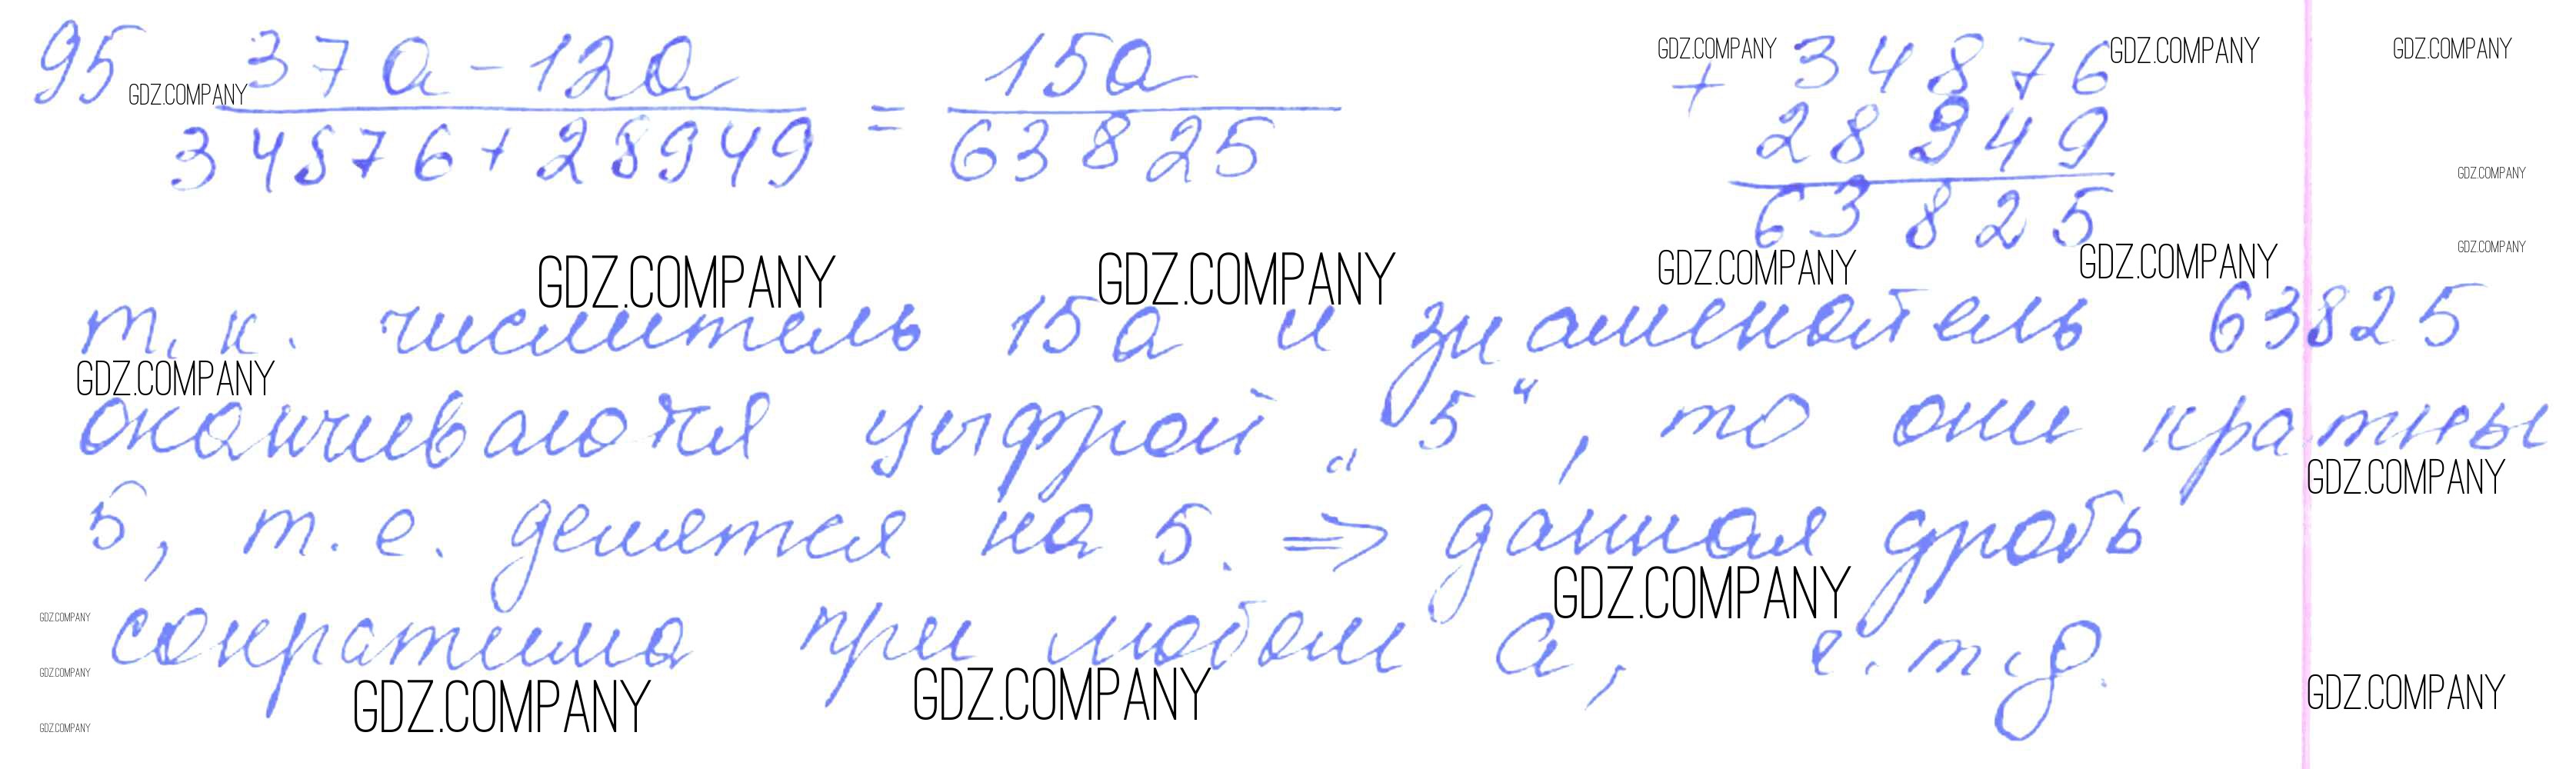 95 37a - 12a / 34876 + 28949 = 15a / 63825
+ 34876
28949
63825
GDZ.COMPANY GDZ.COMPANY GDZ.COMPANY GDZ.COMPANY
GDZ.COMPANY
GDZ.COMPANY GDZ.COMPANY GDZ.COMPANY GDZ.COMPANY GDZ.COMPANY
т.к. числитель 15a и знаменатель 63825
GDZ.COMPANY
оканчиваются цифрой „5“, то они кратны
GDZ.COMPANY
5, т.е. делятся на 5. => данная дробь
GDZ.COMPANY
GDZ.COMPANY
сократима при любом a, ч.т.д.
GDZ.COMPANY GDZ.COMPANY GDZ.COMPANY GDZ.COMPANY
GDZ.COMPANY